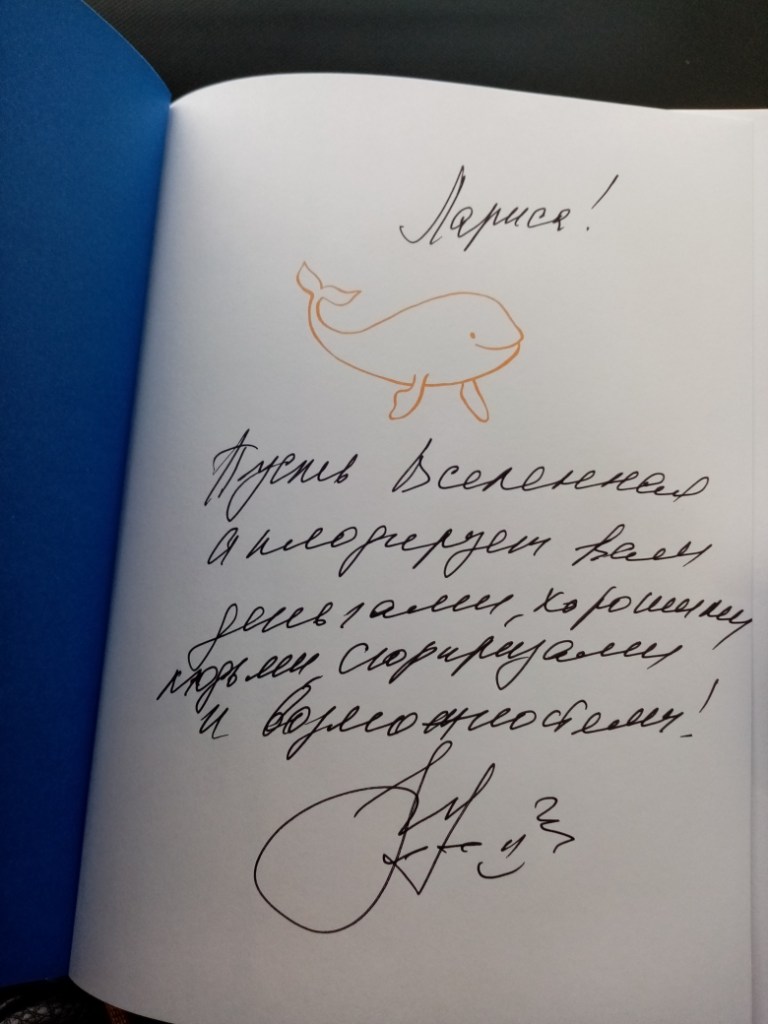 Лариса!
Пусть Вселенная
аплодирует вам
деньгами, хорошими
людьми, сюрпризами
и возможностями!